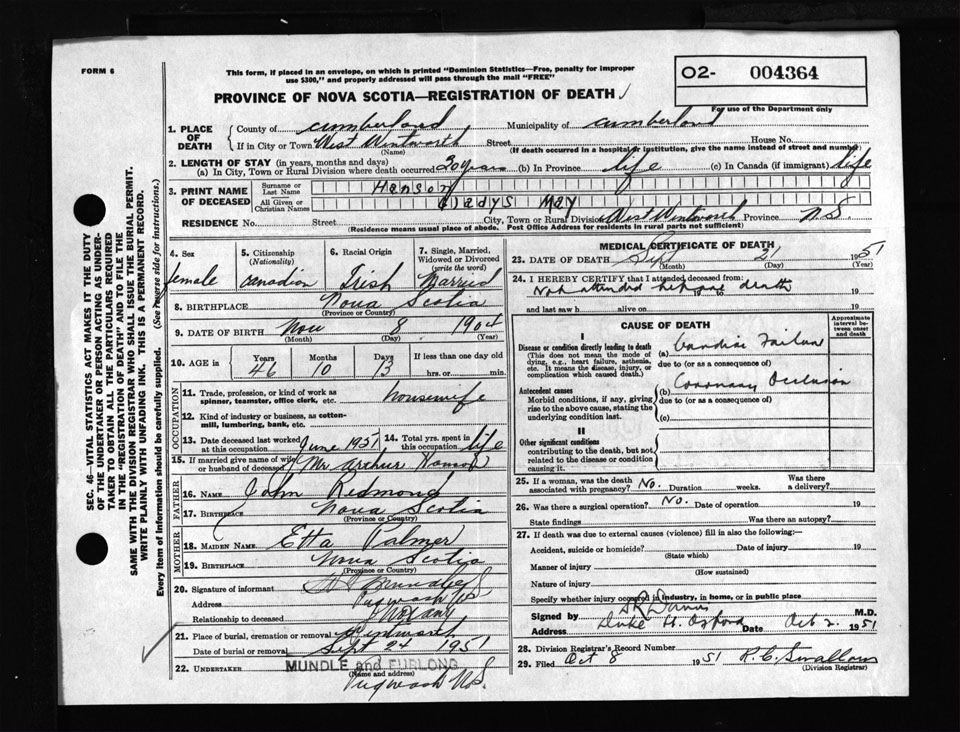 FORM 6
This form, if placed in an envelope, on which is printed "Dominion Statistics—Free, penalty for improper
use $300," and properly addressed will pass through the mail "FREE"
02- 004364
For use of the Department only
PROVINCE OF NOVA SCOTIA—REGISTRATION OF DEATH
1. PLACE OF DEATH
County of cumberland Municipality of cumberland
If in City or Town West Wentworth Street House No.
(Name) (If death occurred in a hospital or institution, give the name instead of street and number)
2. LENGTH OF STAY (in years, months and days)
(a) In City, Town or Rural Division where death occurred 20 years (b) In Province life (c) In Canada (if immigrant) life
3. PRINT NAME OF DECEASED
Surname or Last Name Hanson
All Given or Christian Names Gladys May
RESIDENCE No. Street City, Town or Rural Division West Wentworth Province N.S.
(Residence means usual place of abode. Post Office Address for residents in rural parts not sufficient)
4. Sex female
5. Citizenship (Nationality) canadian
6. Racial Origin Irish
7. Single, Married, Widowed or Divorced (write the word) Married
8. BIRTHPLACE Nova Scotia
(Province or Country)
9. DATE OF BIRTH Nov 8 1904
(Month) (Day) (Year)
10. AGE in Years 46 Months 10 Days 13 If less than one day old hrs. or min.
OCCUPATION
11. Trade, profession, or kind of work as spinner, teamster, office clerk, etc. housewife
12. Kind of industry or business, as cotton-mill, lumbering, bank, etc.
13. Date deceased last worked at this occupation June 1951
14. Total yrs. spent in this occupation life
15. If married give name of wife or husband of deceased Mr Arthur Hanson
FATHER
16. NAME John Redmond
17. BIRTHPLACE Nova Scotia
(Province or Country)
MOTHER
18. MAIDEN NAME Etta Palmer
19. BIRTHPLACE Nova Scotia
(Province or Country)
20. Signature of informant Mundle
Address Pugwash N.S.
Relationship to deceased
21. Place of burial, cremation or removal Wentworth
Date of burial or removal Sept 24 1951
22. UNDERTAKER MUNDLE and FURLONG
(Name and address)
Pugwash N.S.
MEDICAL CERTIFICATE OF DEATH
23. DATE OF DEATH Sept 21 1951
(Month) (Day) (Year)
24. I HEREBY CERTIFY that I attended deceased from:
Not attended before death 19 to 19
and last saw h alive on 19
CAUSE OF DEATH
Approximate interval between onset and death
I
Disease or condition directly leading to death
(This does not mean the mode of dying, e.g., heart failure, asthenia, etc. It means the disease, injury, or complication which caused death.)
(a) Cardiac Failure
due to (or as a consequence of)
Antecedent causes
Morbid conditions, if any, giving rise to the above cause, stating the underlying condition last.
(b) Coronary Occlusion
due to (or as a consequence of)
(c)
II
Other significant conditions
contributing to the death, but not related to the disease or condition causing it.
25. If a woman, was the death associated with pregnancy? No. Duration weeks. Was there a delivery?
26. Was there a surgical operation? No. Date of operation 19
State findings Was there an autopsy?
27. If death was due to external causes (violence) fill in also the following:—
Accident, suicide or homicide? Date of injury 19
(State which)
Manner of injury
(How sustained)
Nature of injury
Specify whether injury occurred in industry, in home, or in public place
Signed by M.D.
Address Duke St. Oxford Date Oct 2. 1951
28. Division Registrar's Record Number
29. Filed Oct 8 1951 R. C. Swallow
(Division Registrar)
SEC. 46—VITAL STATISTICS ACT MAKES IT THE DUTY
OF THE UNDERTAKER OR PERSON ACTING AS UNDER-
TAKER TO OBTAIN ALL THE PARTICULARS REQUIRED
IN THE "REGISTRATION OF DEATH" AND TO FILE THE
SAME WITH THE DIVISION REGISTRAR WHO SHALL ISSUE THE BURIAL PERMIT.
WRITE PLAINLY WITH UNFADING INK. THIS IS A PERMANENT RECORD.
Every item of information should be carefully supplied. (See reverse side for instructions.)